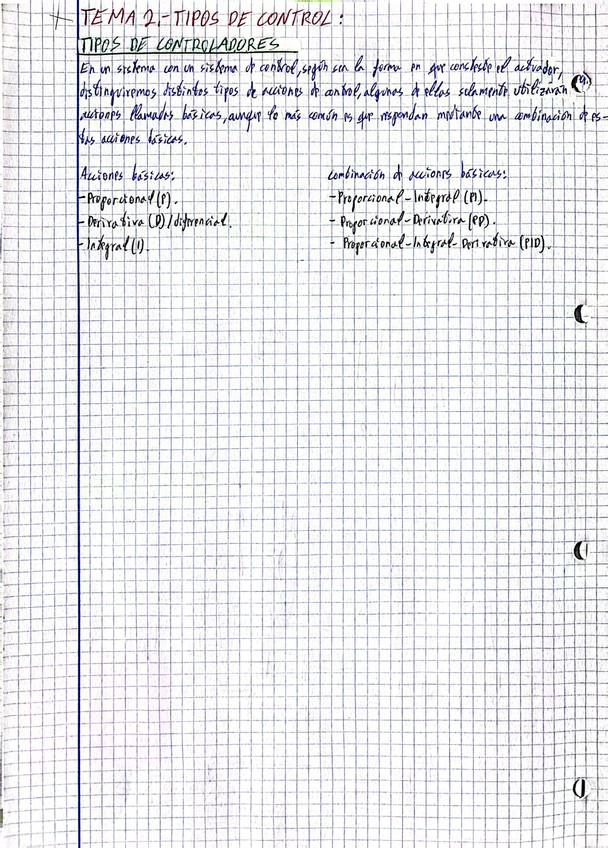 TEMA 2.-TIPOS DE CONTROL:
TIPOS DE CONTROLADORES
En un sistema con un sistema de control, según sea la forma en que conteste el activador,
distinguiremos distintos tipos de acciones de control, algunas de ellas solamente utilizarán
acciones llamadas básicas, aunque lo más común es que respondan mediante una combinación de es-
tas acciones básicas.
Acciones básicas:
-Proporcional (P).
-Derivativa (D)/diferencial.
-Integral (I).
combinación de acciones básicas:
-Proporcional-Integral (PI).
-Proporcional-Derivativa (PD).
- Proporcional-Integral-Derivativa (PID).